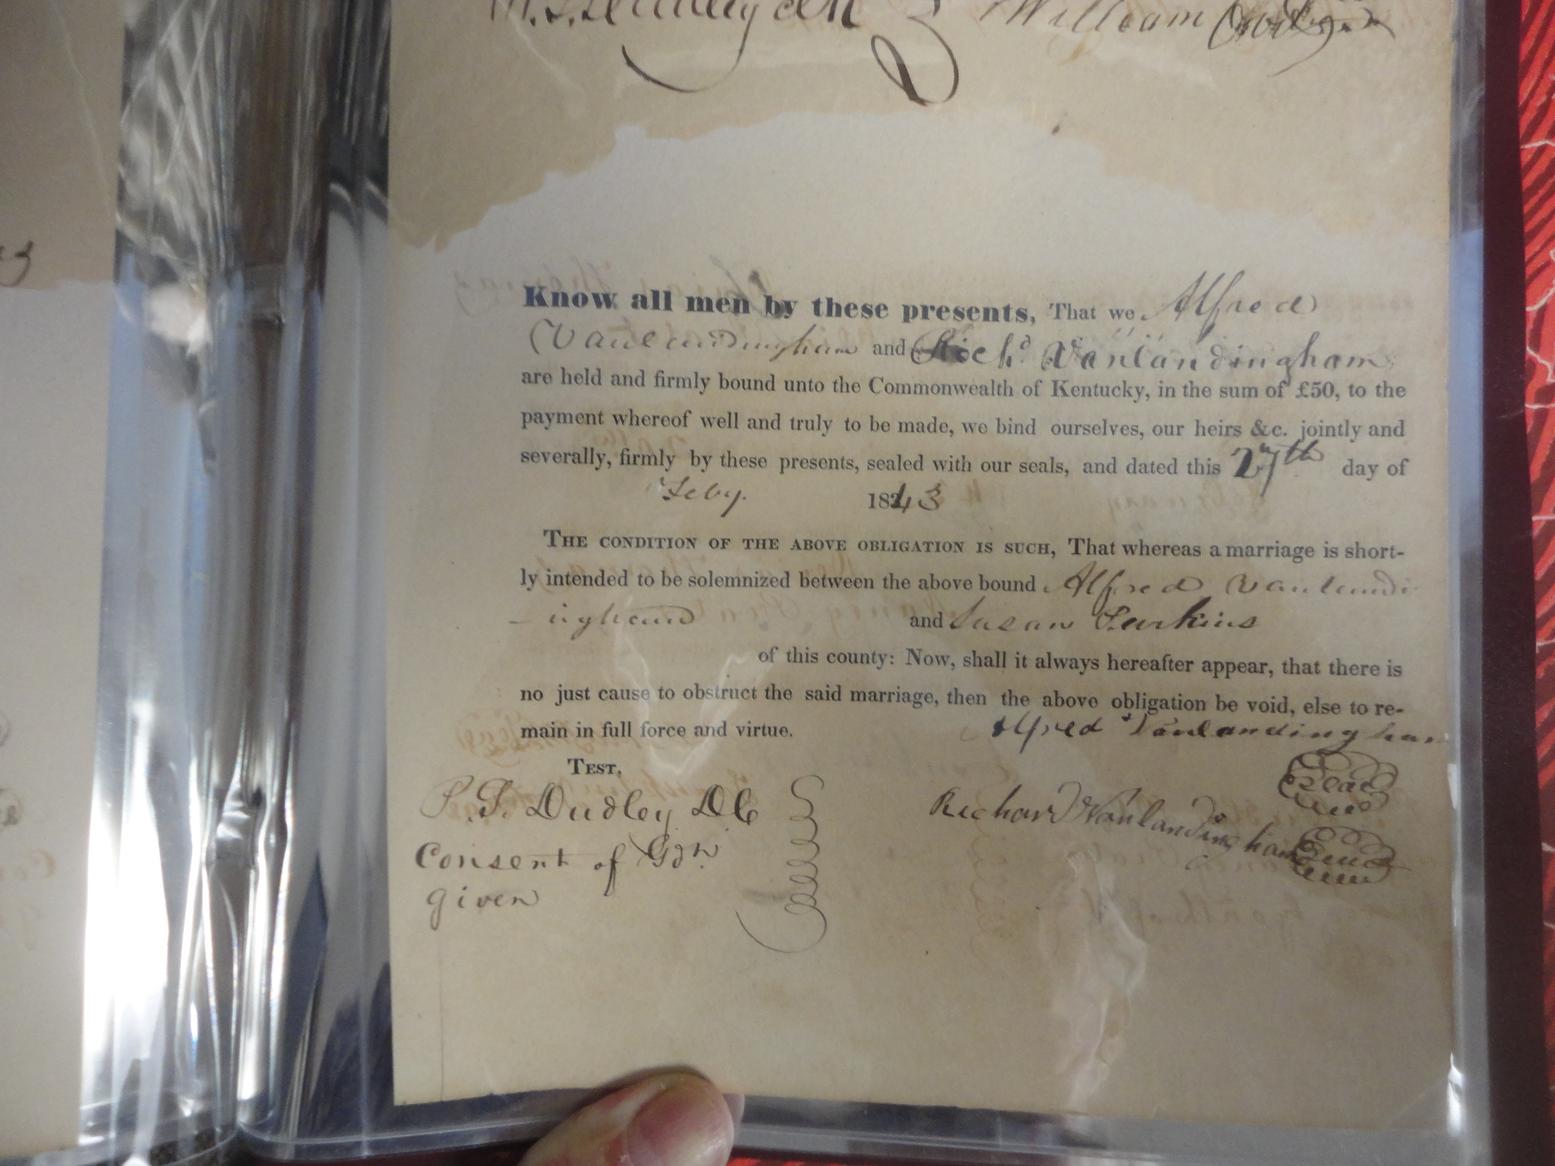 William
Know all men by these presents, That we Alfred
Vanlandingham and Richd Vanlandingham
are held and firmly bound unto the Commonwealth of Kentucky, in the sum of £50, to the
payment whereof well and truly to be made, we bind ourselves, our heirs &c. jointly and
severally, firmly by these presents, sealed with our seals, and dated this 27th day of
Feby. 1843
THE CONDITION OF THE ABOVE OBLIGATION IS SUCH, That whereas a marriage is short-
ly intended to be solemnized between the above bound Alfred Vanlandi
- ingham and Susan Perkins
of this county: Now, shall it always hereafter appear, that there is
no just cause to obstruct the said marriage, then the above obligation be void, else to re-
main in full force and virtue. Alfred Vanlandingham
TEST. Seal
P. S. Dudley DC Richard Vanlandingham Seal
Consent of Gdn
given